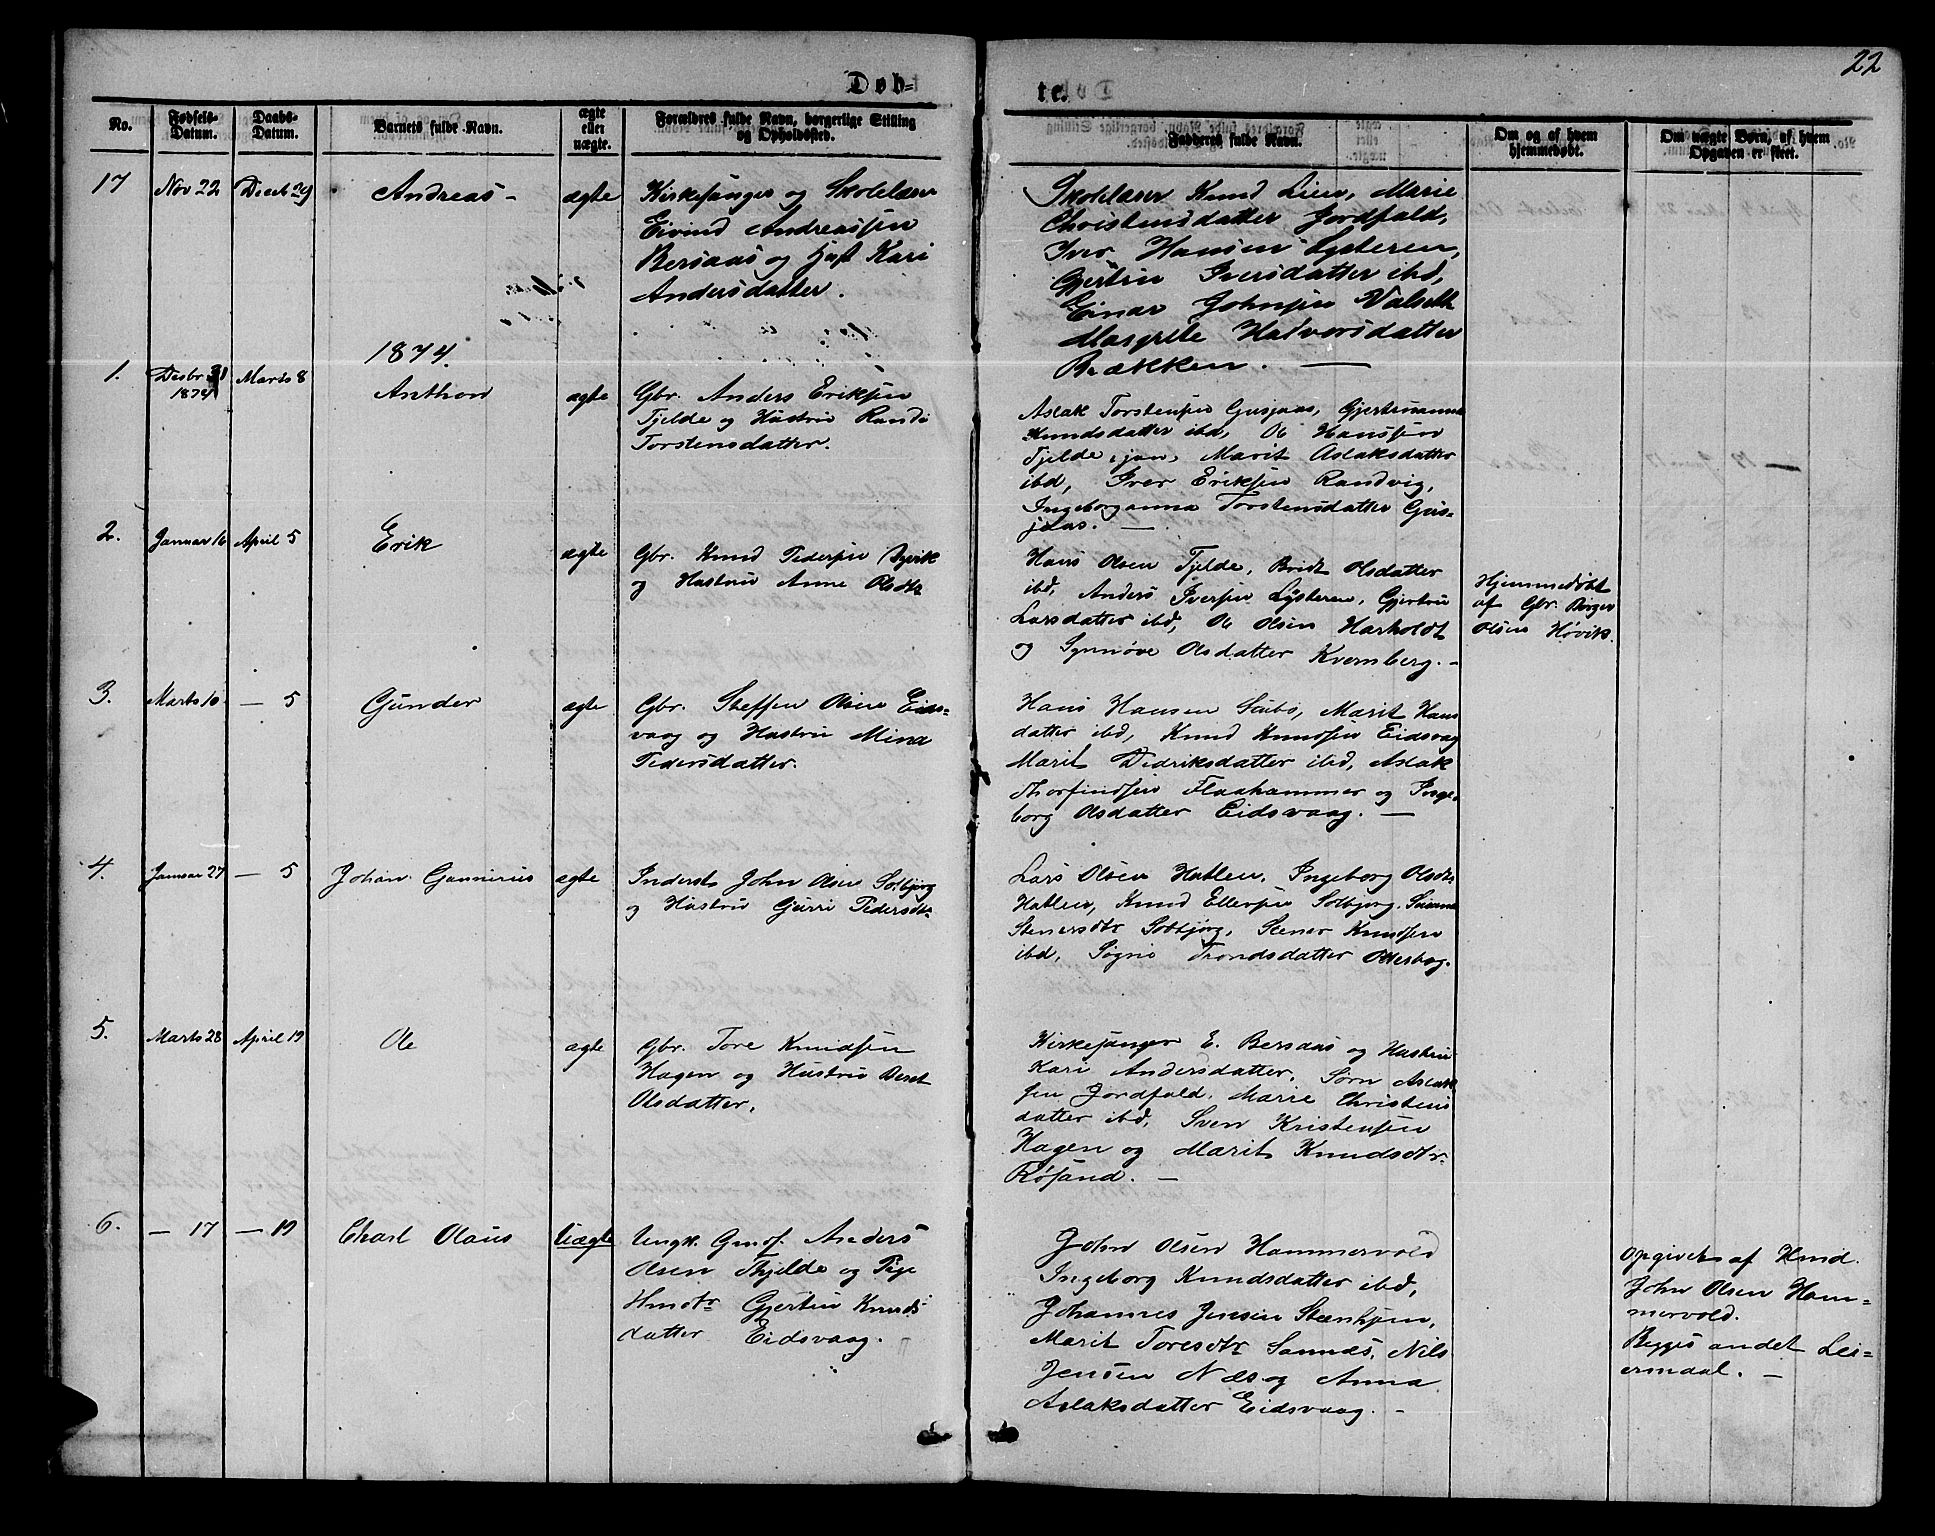 22
Døb- te.
No.
Fødsels-Datum.
Daabs-Datum.
Barnets fulde Navn.
ægte eller uægte.
Forældres fulde Navn, borgerlige Stilling og Opholdssted.
Fadderes fulde Navn.
Om og af hvem hjemmedøbt.
Om uægte Børn, af hvem Opgaven er skeet.
17 Nov 22 Decb 29 Andreas - ægte
Kirkesanger og Skolelærer
Eivind Andreassen
Bersaas og Hust Kari
Andersdatter.
Skolelærer Knud Lien, Marie
Christensdatter Jordfald,
Iver Hansen Lysteren,
Gjertru Iversdatter ibd,
Einar Johnsen Valseth
Margrete Halvorsdatter
Brækken. —
1874.
1. Desbr 31 1874 Marts 8 Anthon ægte
Gbr. Anders Eriksen
Tjelde og Hustru Randi
Torstensdatter.
Aslak Torstensen Gusjaas, Gjertruanna
Knudsdatter ibd, Ole Hanssen
Tjelde, Marit Aslaksdatter
ibd, Iver Eriksen Randvig,
Ingeborganna Torstensdatter Gus-
jaas. —
2. Januar 16 April 5 Erik ægte
Gbr. Knud Pedersen
og Hustru Anne Olsdtr
Hans Olsen Tjelde, Brit Olsdatter
ibd, Anders Iversen Lysteren, Gjertru
Larsdatter ibd, Ole Olsen Harholdt
og Synnøve Olsdatter Kvernberg. -
Hjemmedøbt
af Gbr. Børger
Olsen Høvik.
3. Marts 10 — 5 Gunder ægte
Gbr. Steffen Olsen Eids-
vaag og Hustru Mina
Pedersdatter.
Hans Hansen Marit Hans
datter ibd, Knud Knudsen Eidsvaag
Marit Didriksdatter ibd, Aslak
Thorfindsen Flaahammer og Inge-
borg Olsdatter Eidsvaag. —
4. Januar 27 — 5 Johan ægte
Inderst John Olsen Solbjørg
og Hustru Gurri Pedersdtr
Lars Olsen Hatlen, Ingeborg Olsdtr
Hatlen, Knud Ellersen Solbjørg,
Stenersdtr Solbjørg, Stener Knudsen
ibd, Trondsdatter
5. Marts 28 April 19 Ole ægte
Gbr. Tore Knudsen
Hagen og Hustru Beret
Olsdatter.
Kirkesanger E. Bersaas og Hustru
Kari Andersdatter, Sørn Aslak
sen Jordfald, Marie Christens
datter ibd, Sven Kristensen
Hagen og Marit Knudsdtr
Røsand. —
6. — 17 — 19 Charl Olaus Uægte
Ungk. Gmdf. Anders
Olsen Thjelde og Pige
Hmdtr Gjertru Knuds
datter Eidsvaag.
John Olsen Hammervold
Ingeborg Knudsdatter ibd,
Johannes Jensen Stenhjem,
Marit Toresdtr Sannes, Nils
Jensen Næs og Anna
Aslaksdatter Eidsvaag. -
Opgivet af Hmd.
John Olsen Ham-
mervold.
Begges andet Lei-
ermaal. —